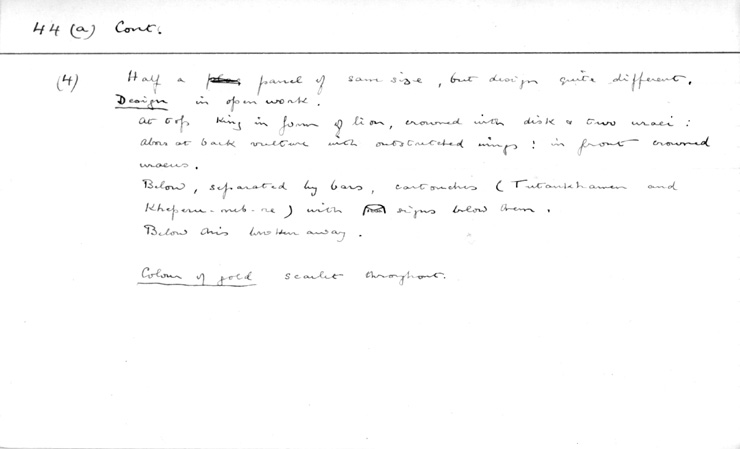 44 (a) Cont.
(4) Half a panel of same size, but design quite different.
Design in open work.
At top King in form of lion, crowned with disk & two uraei:
above at back vulture with outstretched wings: in front crowned
uraeus.
Below, separated by bars, cartouches (Tutankhamen and
Kheperu-neb-re) with signs below them.
Below this broken away.
Colour of gold scarlet throughout.